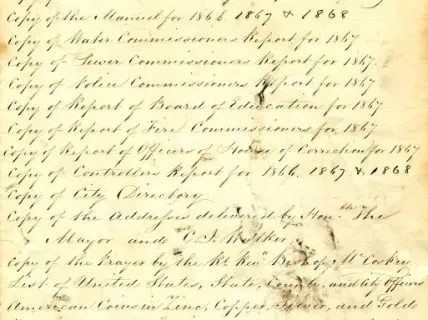 Copy of the Manual for 1866, 1867 & 1868
Copy of Water Commissioners Report for 1867
Copy of Sewer Commissioners Report for 1867.
Copy of Police Commissioners Report for 1867
Copy of Report of Board of Education for 1867
Copy of Report of Fire Commissioners for 1867
Copy of Report of Officers of House of Correction for 1867
Copy of Controllers Report for 1866, 1867 & 1868
Copy of City Directory
Copy of the Addresses delivered by Honble The
Mayor and C. I. Walker
Copy of the Prayer by the Rt. Revd. Bishop McCoskry
List of United States, State, County, and City Officers
American Coins in Zinc, Copper, Silver, and Gold